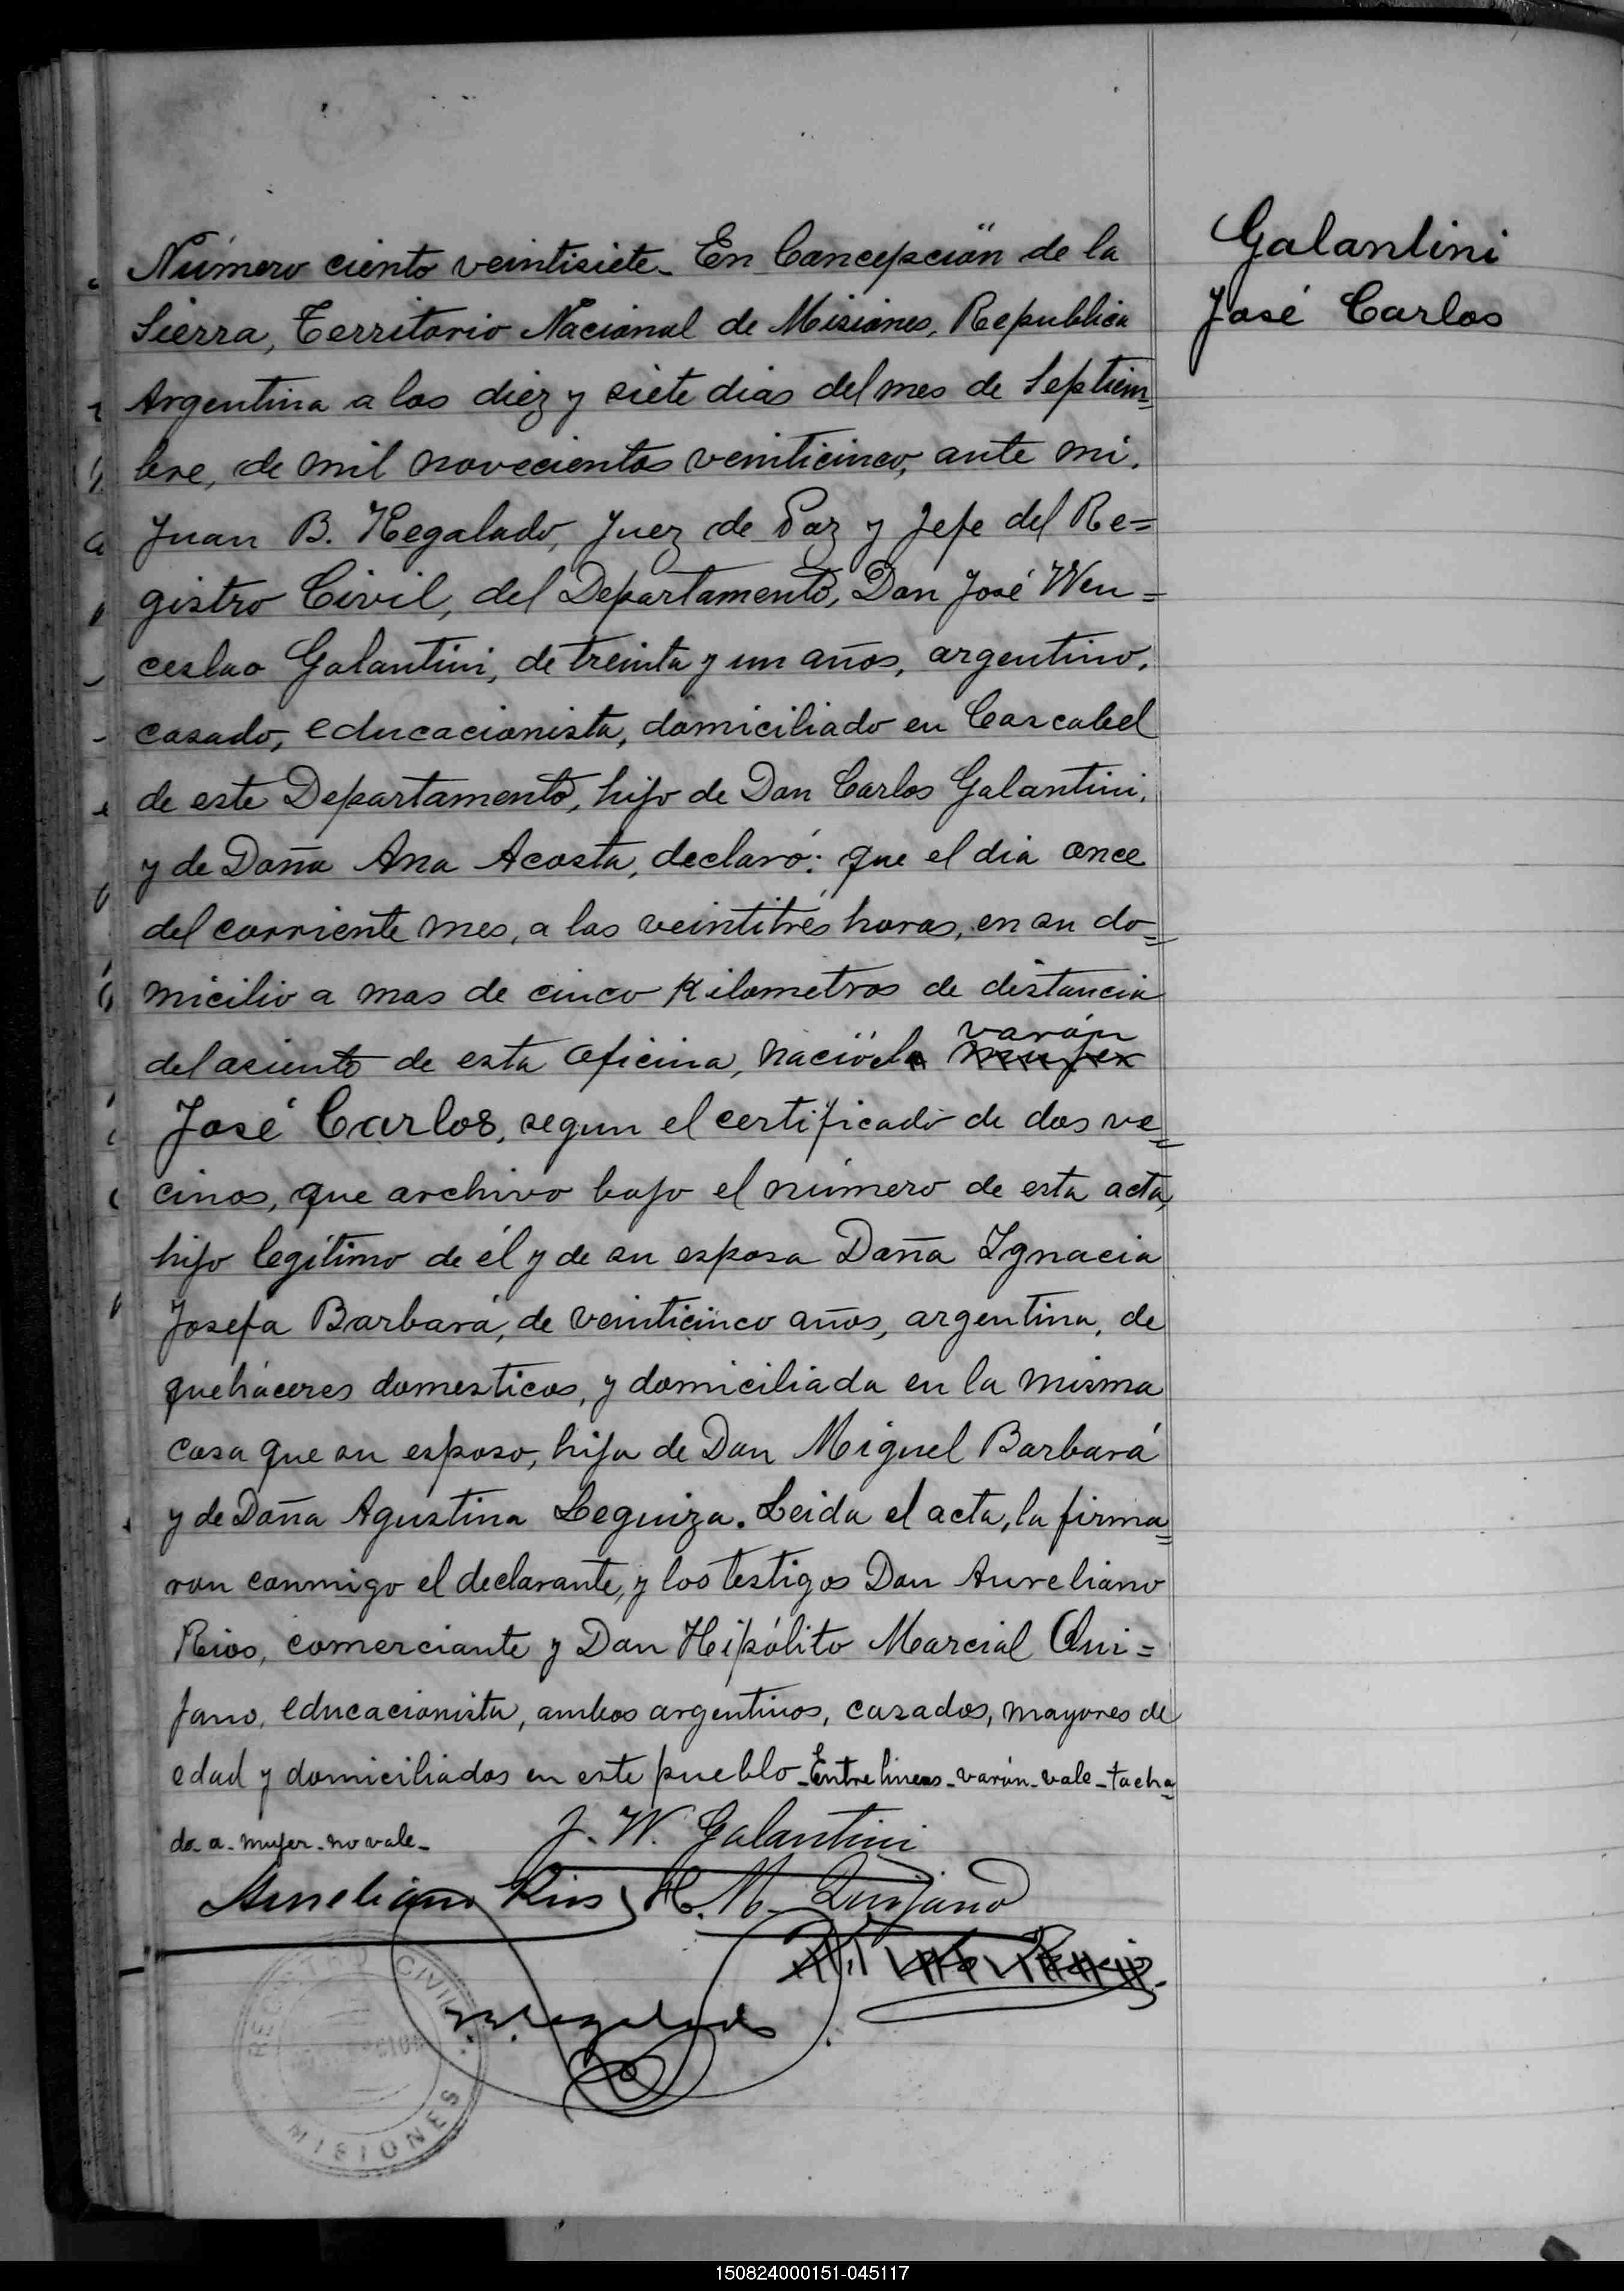 Número ciento veintisiete_ En Concepción de la
Sierra, Territorio Nacional de Misiones, Republica
Argentina a los diez y siete dias del mes de Septiem_
bre, de mil novecientos veinticinco, ante mi,
Juan B. Regalado, Juez de Paz y Jefe del Re=
gistro Civil, del Departamento, Don José Wen=
ceslao Galantini, de treinta y un años, argentino,
casado, educacionista, domiciliado en Cascabel
de este Departamento, hijo de Don Carlos Galantini,
y de Doña Ana Acosta, declaró: que el dia once
del corriente mes, a las veintitrés horas, en su do=
micilio a mas de cinco Kilometros de distancia
varón
del asiento de esta Oficina, nació el a mujer
José Carlos, segun el certificado de dos ve=
cinos, que archivo bajo el número de esta acta,
hijo legítimo de él y de su esposa Doña Ignacia
Josefa Barbará, de veinticinco años, argentina, de
quehaceres domesticos, y domiciliada en la misma
casa que su esposo, hija de Don Miguel Barbará
y de Doña Agustina Leguiza. Leida el acta, la firma=
ron conmigo el declarante, y los testigos Don Aureliano
Rios, comerciante y Don Hipólito Marcial Qui=
jano, educacionista, ambos argentinos, casados, mayores de
edad y domiciliados en este pueblo_Entre lineas_varón_vale_tacha=
do_a_mujer_no vale_
J. W. Galantini
Aureliano Rios H. M. Quijano
Regalado
REGISTRO CIVIL
MISIONES
Galantini
José Carlos
150824000151-045117